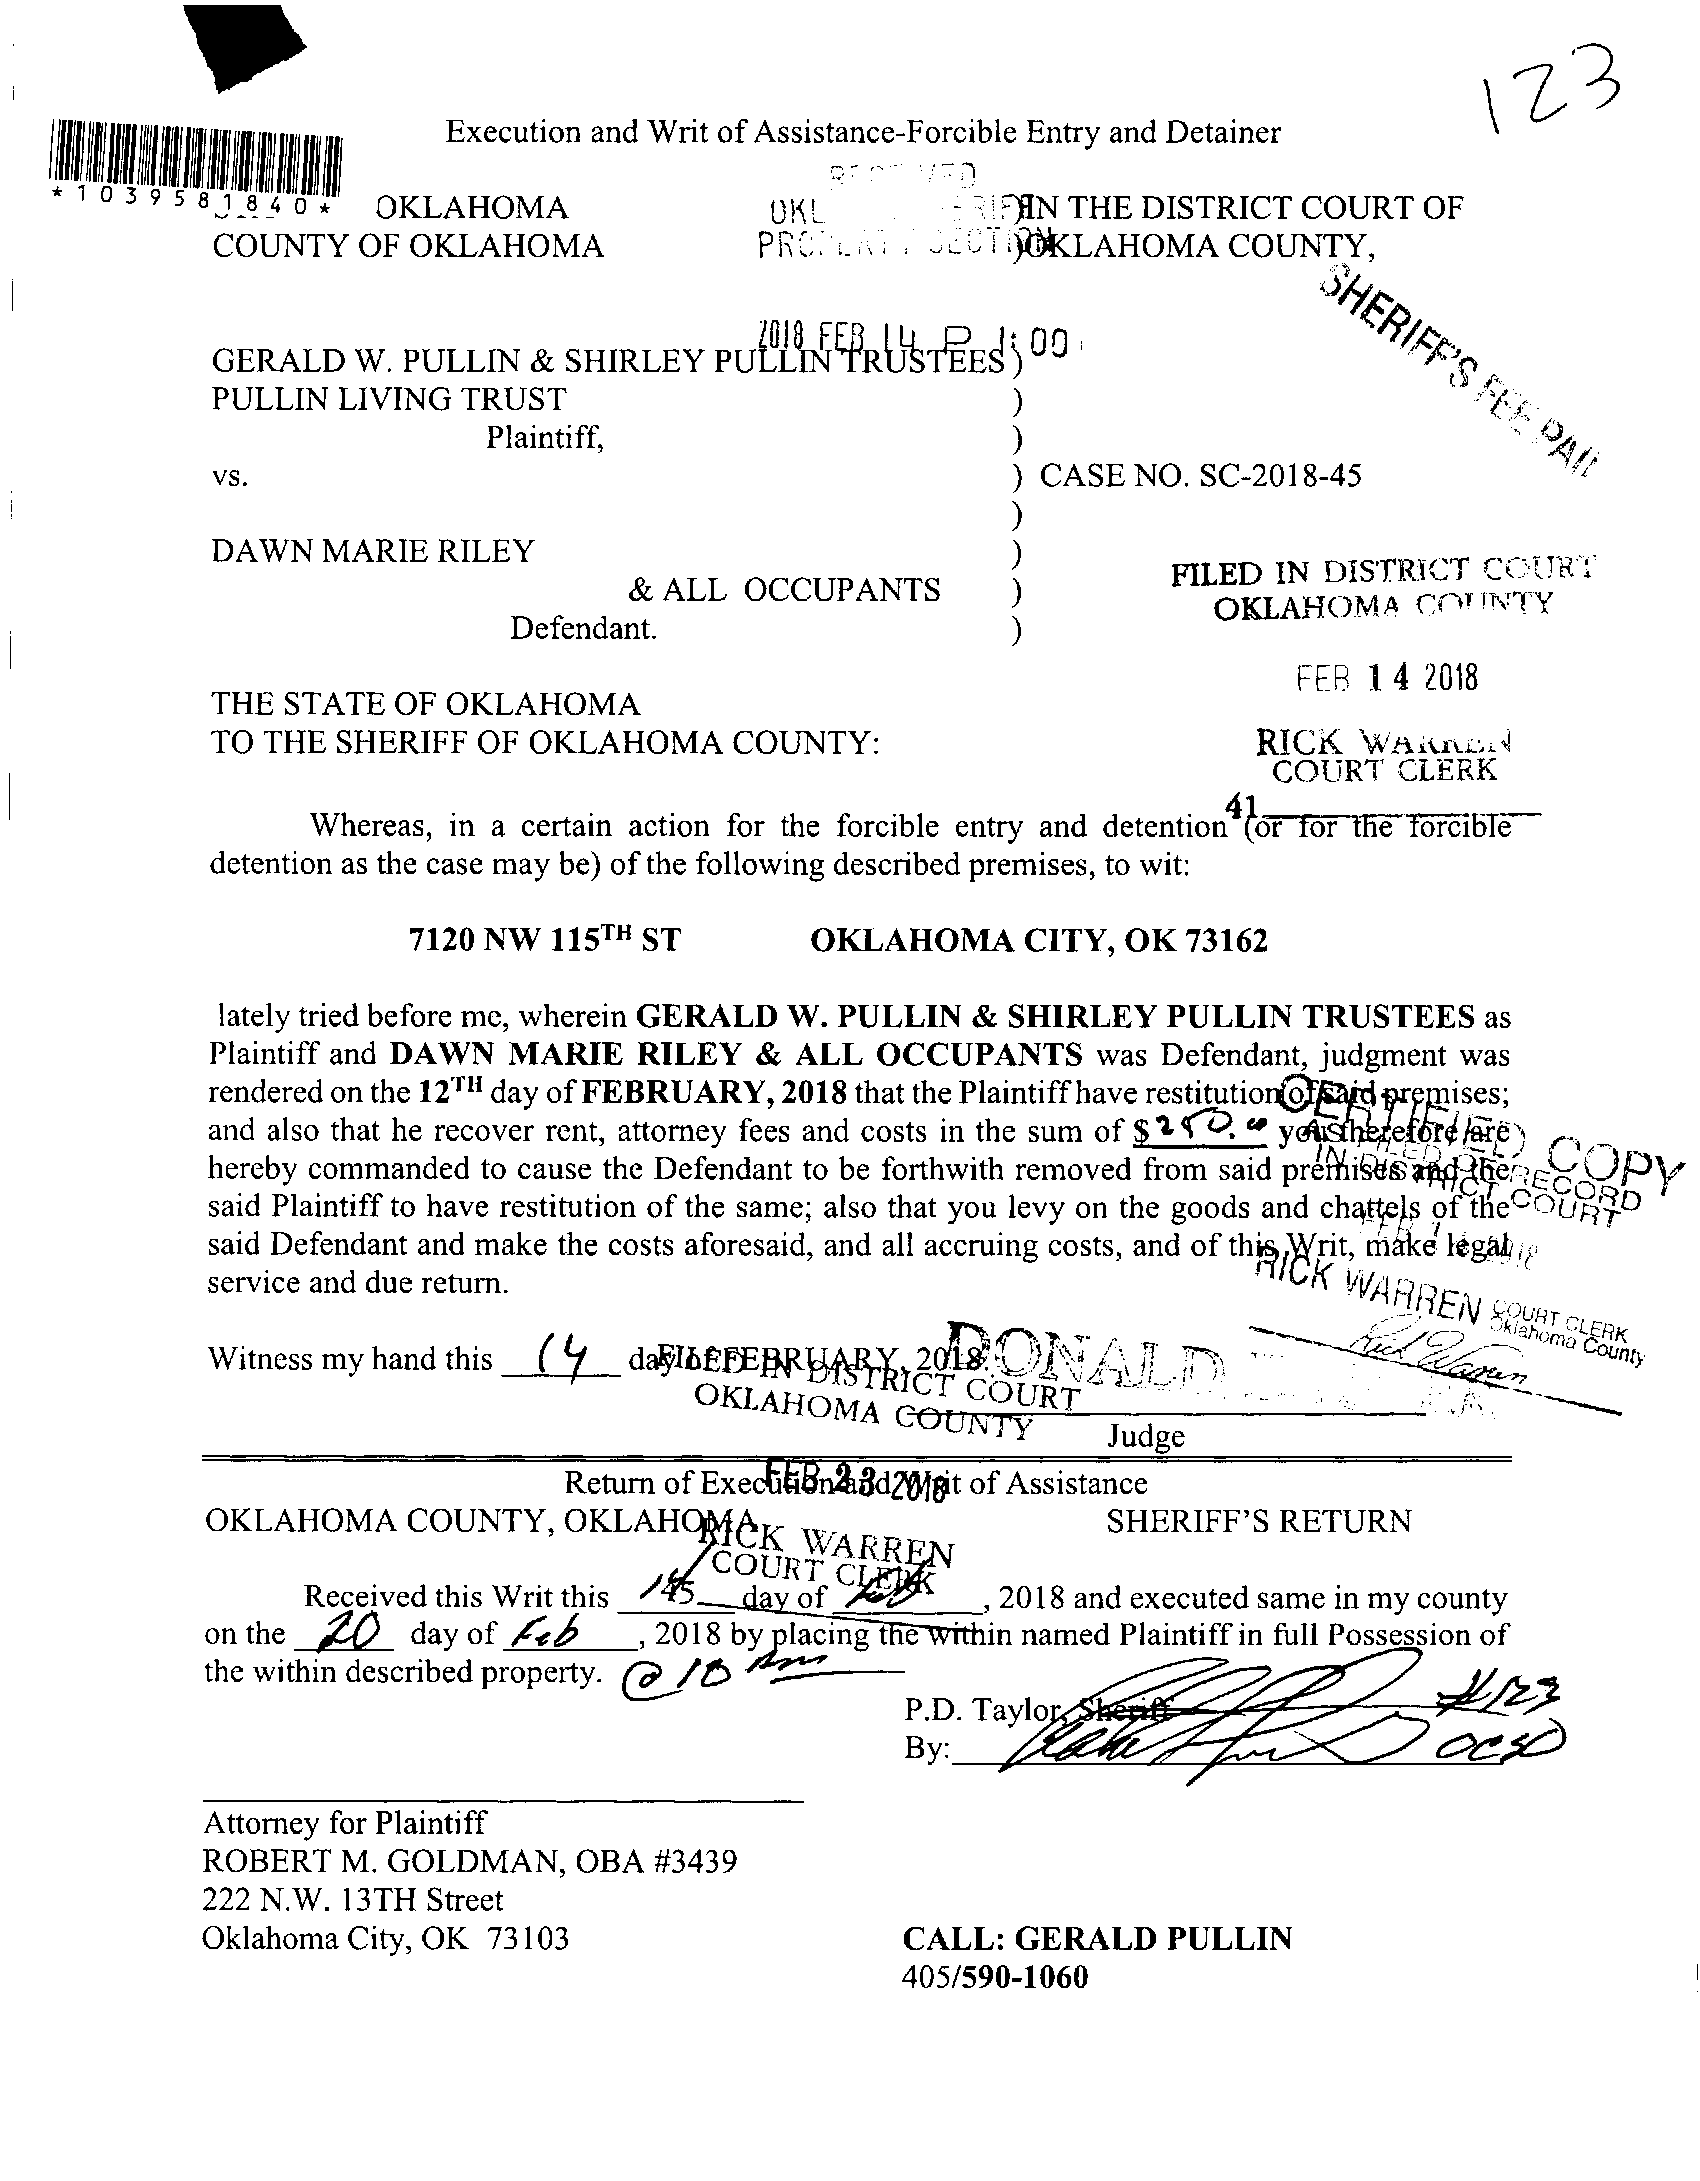 123
Execution and Writ of Assistance-Forcible Entry and Detainer
*1039581840*
OKLAHOMA ) IN THE DISTRICT COURT OF
COUNTY OF OKLAHOMA ) OKLAHOMA COUNTY,
SHERIFF'S FEE PAID
2018 FEB 14 P 1:00
GERALD W. PULLIN & SHIRLEY PULLIN TRUSTEES )
PULLIN LIVING TRUST )
Plaintiff, )
vs. ) CASE NO. SC-2018-45
)
DAWN MARIE RILEY )
& ALL OCCUPANTS )
Defendant. )
FILED IN DISTRICT COURT
OKLAHOMA COUNTY
FEB 14 2018
RICK WARREN
COURT CLERK
41
THE STATE OF OKLAHOMA
TO THE SHERIFF OF OKLAHOMA COUNTY:
Whereas, in a certain action for the forcible entry and detention (or for the forcible
detention as the case may be) of the following described premises, to wit:
7120 NW 115TH ST OKLAHOMA CITY, OK 73162
lately tried before me, wherein GERALD W. PULLIN & SHIRLEY PULLIN TRUSTEES as
Plaintiff and DAWN MARIE RILEY & ALL OCCUPANTS was Defendant, judgment was
rendered on the 12TH day of FEBRUARY, 2018 that the Plaintiff have restitution of said premises;
and also that he recover rent, attorney fees and costs in the sum of $ you therefore are
hereby commanded to cause the Defendant to be forthwith removed from said premises and the
said Plaintiff to have restitution of the same; also that you levy on the goods and chattels of the
said Defendant and make the costs aforesaid, and all accruing costs, and of this Writ, make legal
service and due return.
CERTIFIED COPY
AS FILED OF RECORD
IN DISTRICT COURT
RICK WARREN COURT CLERK
Oklahoma County
Rick Warren
Witness my hand this 14 day of FEBRUARY, 2018.
DONALD
Judge
FILED IN DISTRICT COURT
OKLAHOMA COUNTY
FEB 23 2018
RICK WARREN
COURT CLERK
Return of Execution and Writ of Assistance
OKLAHOMA COUNTY, OKLAHOMA SHERIFF'S RETURN
Received this Writ this day of Feb, 2018 and executed same in my county
on the 20 day of Feb, 2018 by placing the within named Plaintiff in full Possession of
the within described property. @ 10 Am
P.D. Taylor, Sheriff #123
By: OCSO
Attorney for Plaintiff
ROBERT M. GOLDMAN, OBA #3439
222 N.W. 13TH Street
Oklahoma City, OK 73103
CALL: GERALD PULLIN
405/590-1060